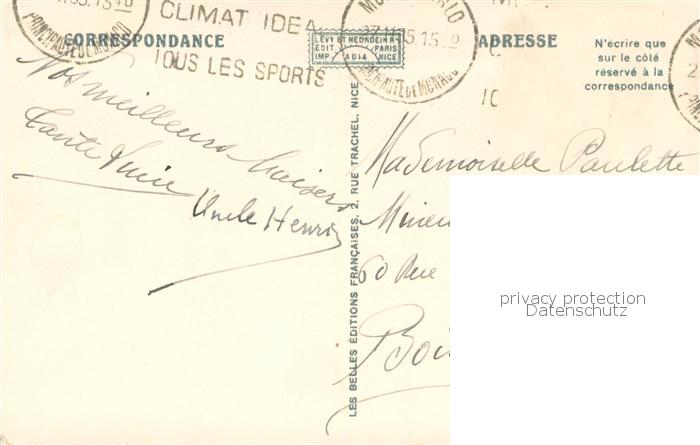 CLIMAT IDEA
TOUS LES SPORTS
PRINCIPAUTE DE MONACO
PRINCIPAUTE DE MONACO
CORRESPONDANCE
LÉVY ET NEURDEIN R
EDIT. PARIS
IMP. ADIA NICE
ADRESSE
N'écrire que
sur le côté
réservé à la
correspondance
Nos meilleurs baisers
Tante
Uncle Henri
LES BELLES ÉDITIONS FRANÇAISES, 2, RUE TRACHEL, NICE
Mademoiselle Paulette
60 Rue
privacy protection
Datenschutz